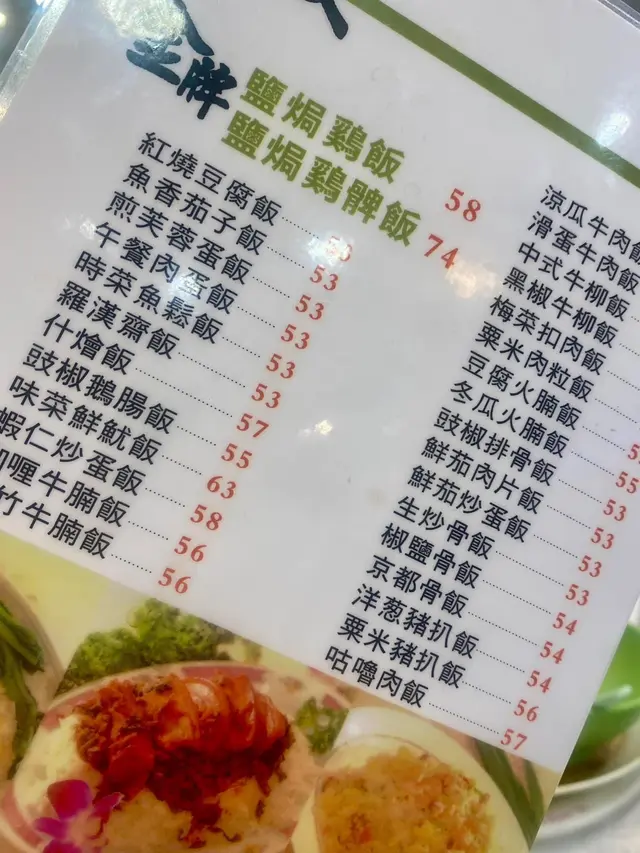 金牌
鹽焗雞飯 58
鹽焗雞髀飯 74
紅燒豆腐飯
魚香茄子飯 53
煎芙蓉蛋飯 53
午餐肉蛋飯 53
時菜魚鬆飯 53
羅漢齋飯 53
什燴飯 57
豉椒鵝腸飯 55
味菜鮮魷飯 63
蝦仁炒蛋飯 58
喱牛腩飯 56
竹牛腩飯 56
涼瓜牛肉飯
滑蛋牛肉飯
中式牛柳飯
黑椒牛柳飯
梅菜扣肉飯
粟米肉粒飯
豆腐火腩飯
冬瓜火腩飯 55
豉椒排骨飯 53
鮮茄肉片飯 53
鮮茄炒蛋飯 53
生炒骨飯 53
椒鹽骨飯 54
京都骨飯 54
洋葱豬扒飯 54
粟米豬扒飯 56
咕嚕肉飯 57